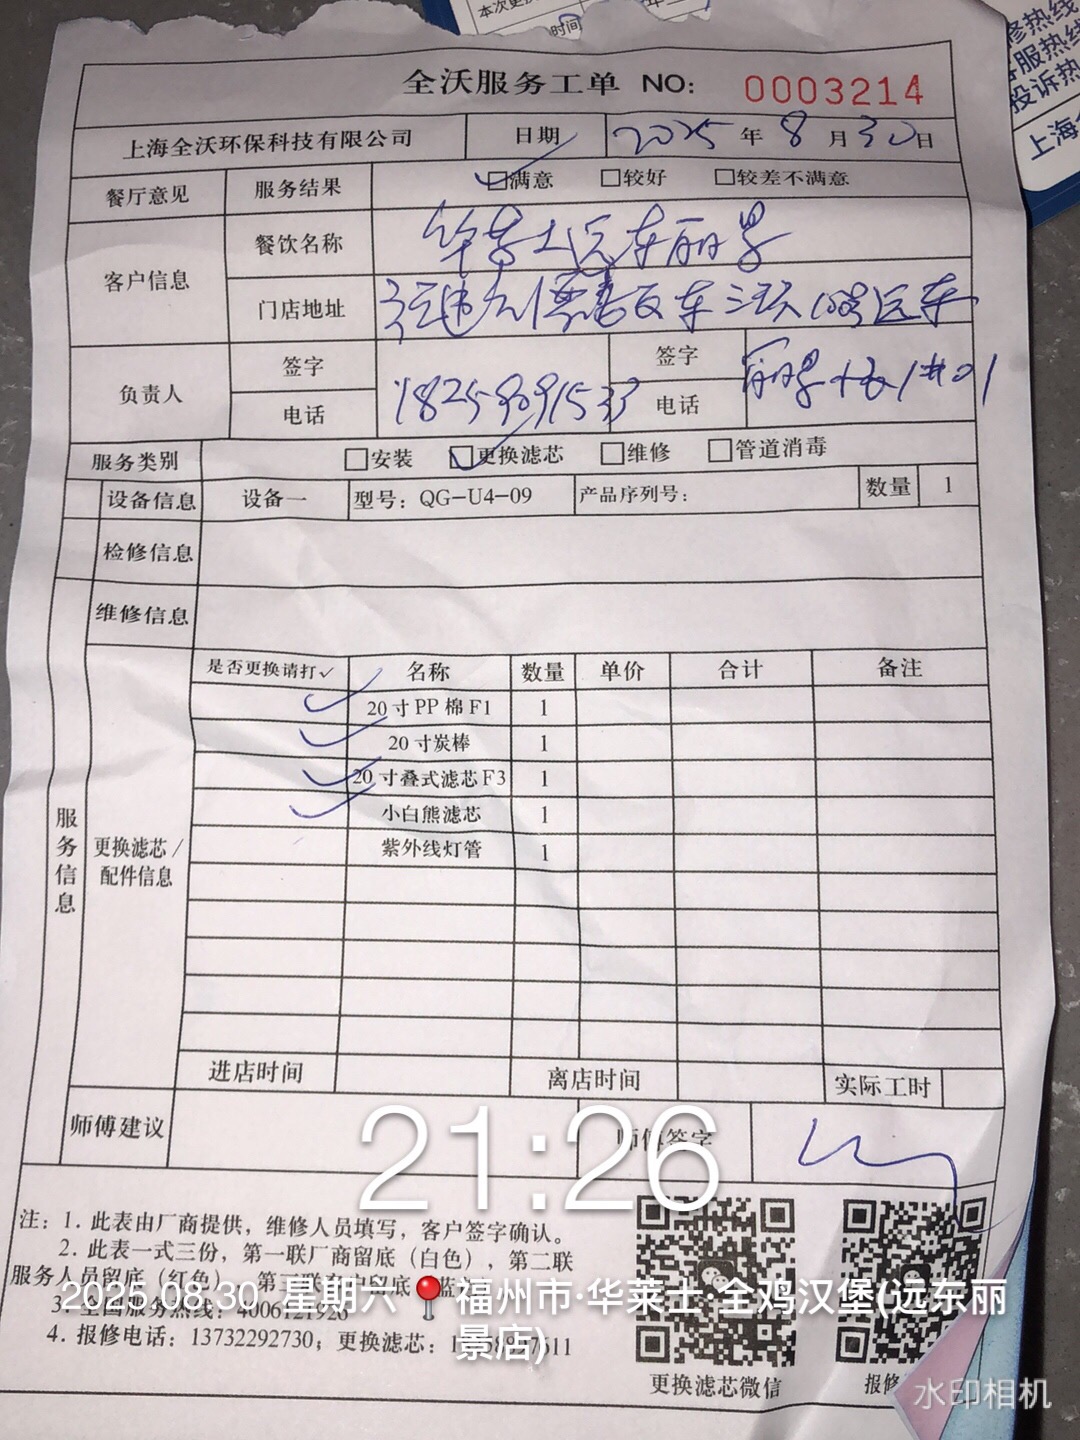 本次更
时间
修热线
客服热线
投诉热
上海
全沃服务工单 NO: 0003214
上海全沃环保科技有限公司 日期 2025 年 8 月 30 日
餐厅意见 服务结果 ☑满意 □较好 □较差不满意
客户信息 餐饮名称 华莱士远东丽景
门店地址 远东
丽景 1#01
负责人 签字 签字
电话 18259091533 电话
服务类别 □安装 ☑更换滤芯 □维修 □管道消毒
设备信息 设备一 型号: QG-U4-09 产品序列号: 数量 1
检修信息
维修信息
服务信息
更换滤芯/
配件信息
是否更换请打✓ 名称 数量 单价 合计 备注
✓ 20寸PP棉F1 1
✓ 20寸炭棒 1
✓ 20寸叠式滤芯F3 1
✓ 小白熊滤芯 1
紫外线灯管 1
进店时间 离店时间 实际工时
师傅建议 师傅签字
21:26
注: 1. 此表由厂商提供，维修人员填写，客户签字确认。
2. 此表一式三份，第一联厂商留底（白色），第二联
服务人员留底（红色），第三联客户留底
3. 全国服务热线: 4006121926
4. 报修电话: 13732292730; 更换滤芯:
2025.08.30 星期六 📍福州市·华莱士·全鸡汉堡(远东丽
景店)
更换滤芯微信
报修
水印相机